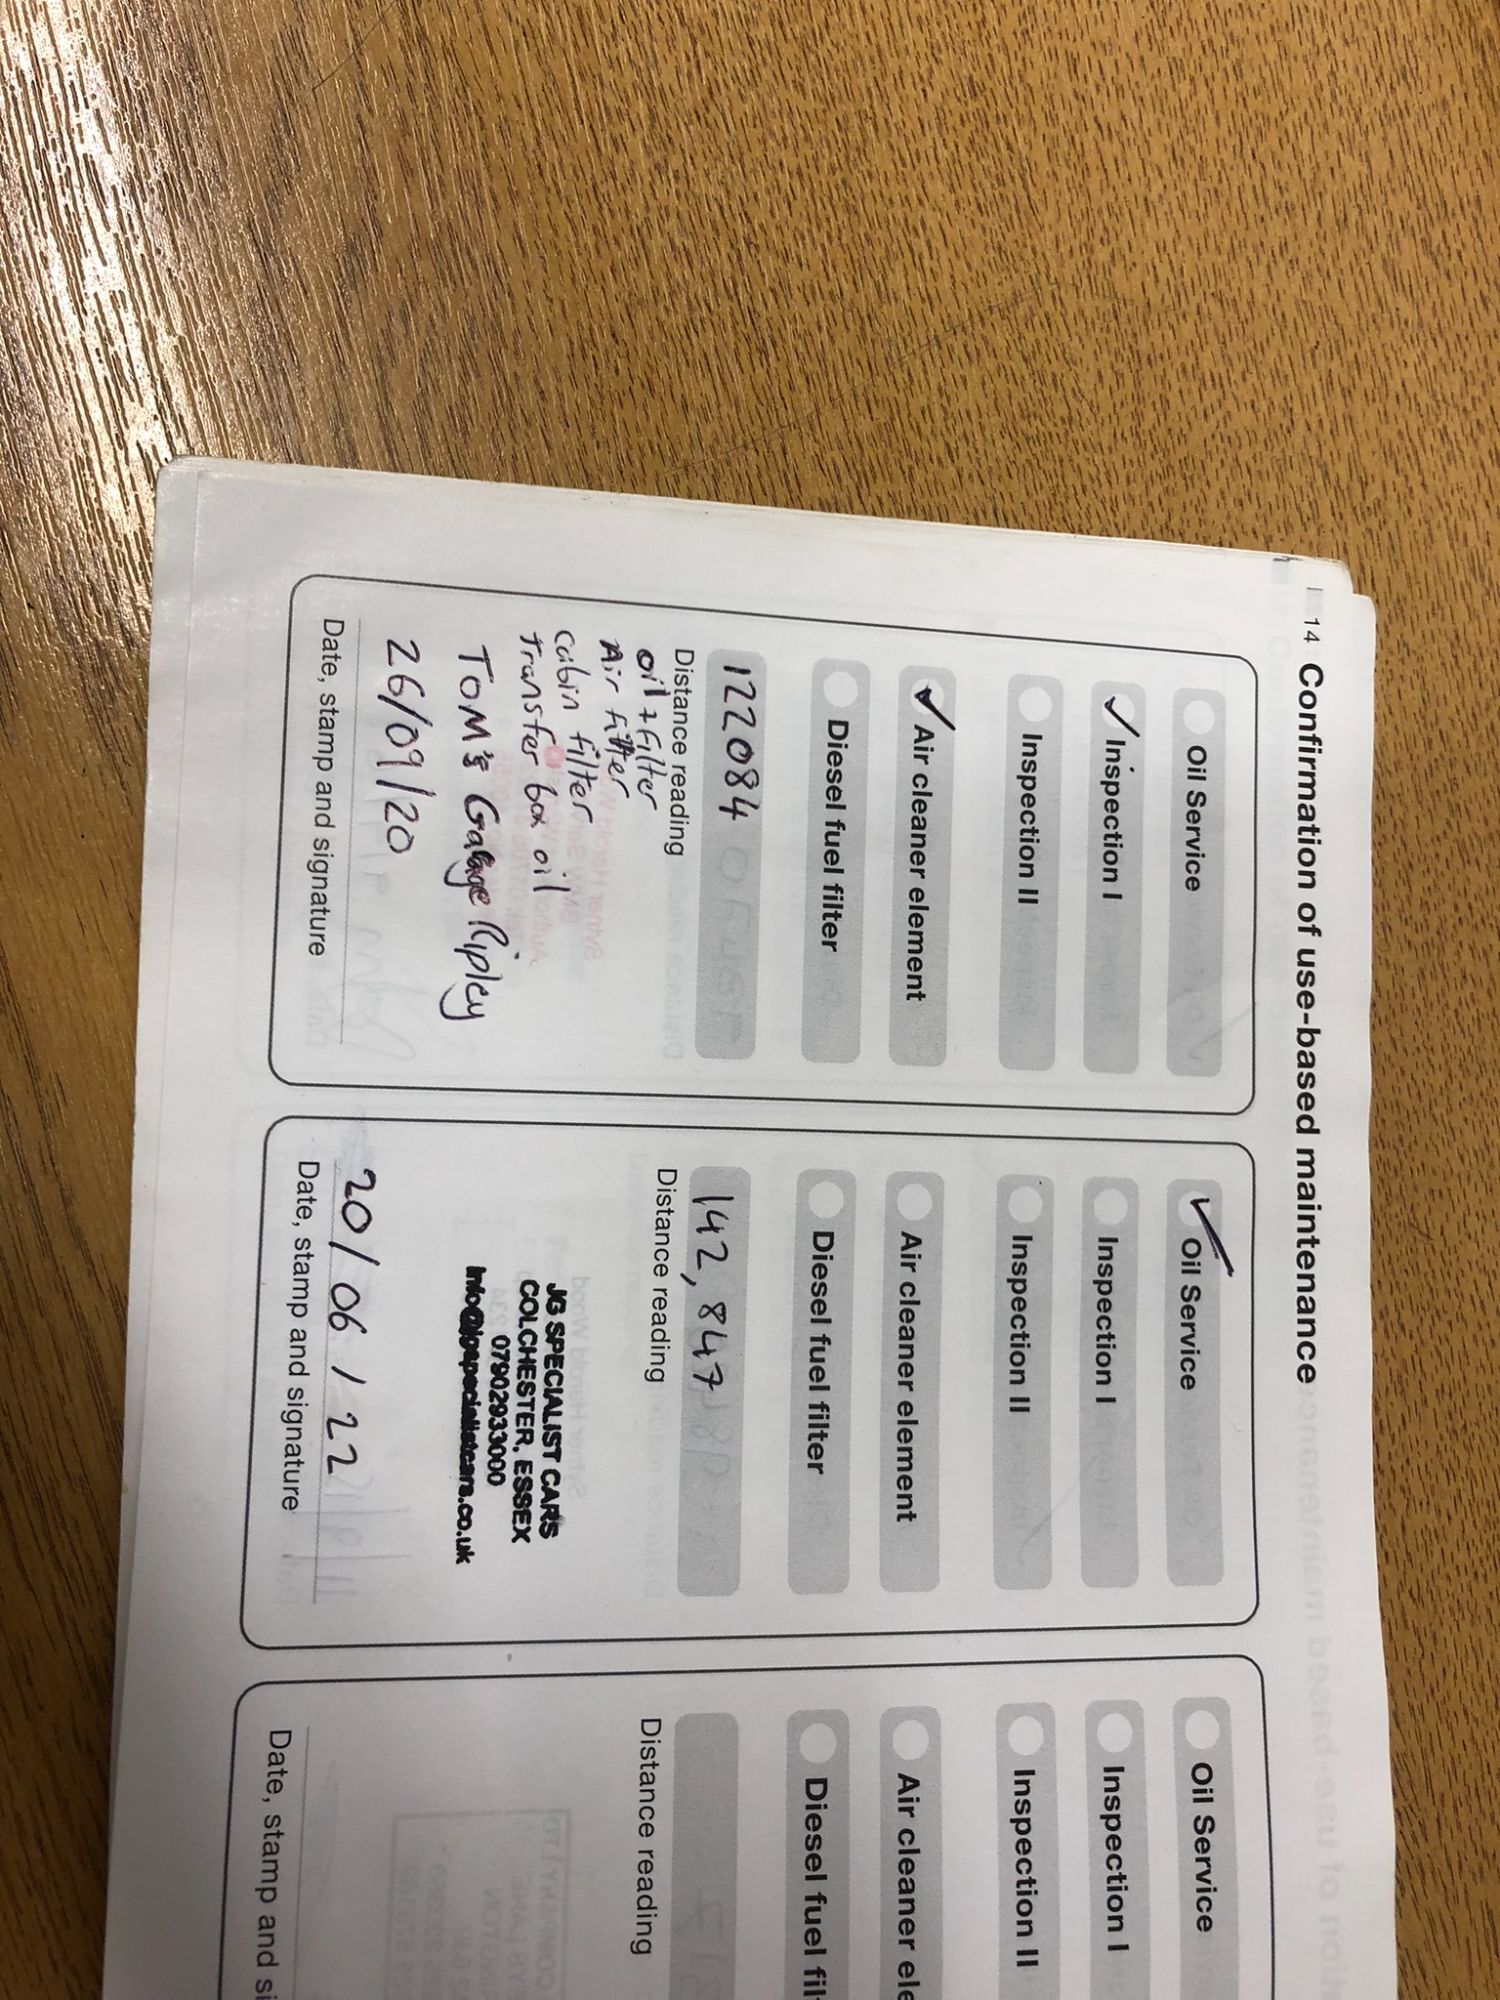 14 Confirmation of use-based maintenance
Oil Service
Inspection I
Inspection II
Air cleaner element
Diesel fuel filter
122084
Distance reading
oil + filter
Air filter
Cabin filter
transfer box oil
TOM's Garage Ripley
26/09/20
Date, stamp and signature
Oil Service
Inspection I
Inspection II
Air cleaner element
Diesel fuel filter
142,847
Distance reading
JG SPECIALIST CARS
COLCHESTER, ESSEX
07902933000
info@jgspecialistcars.co.uk
20/06/22
Date, stamp and signature
Oil Service
Inspection I
Inspection II
Air cleaner ele
Diesel fuel fil
Distance reading
Date, stamp and si